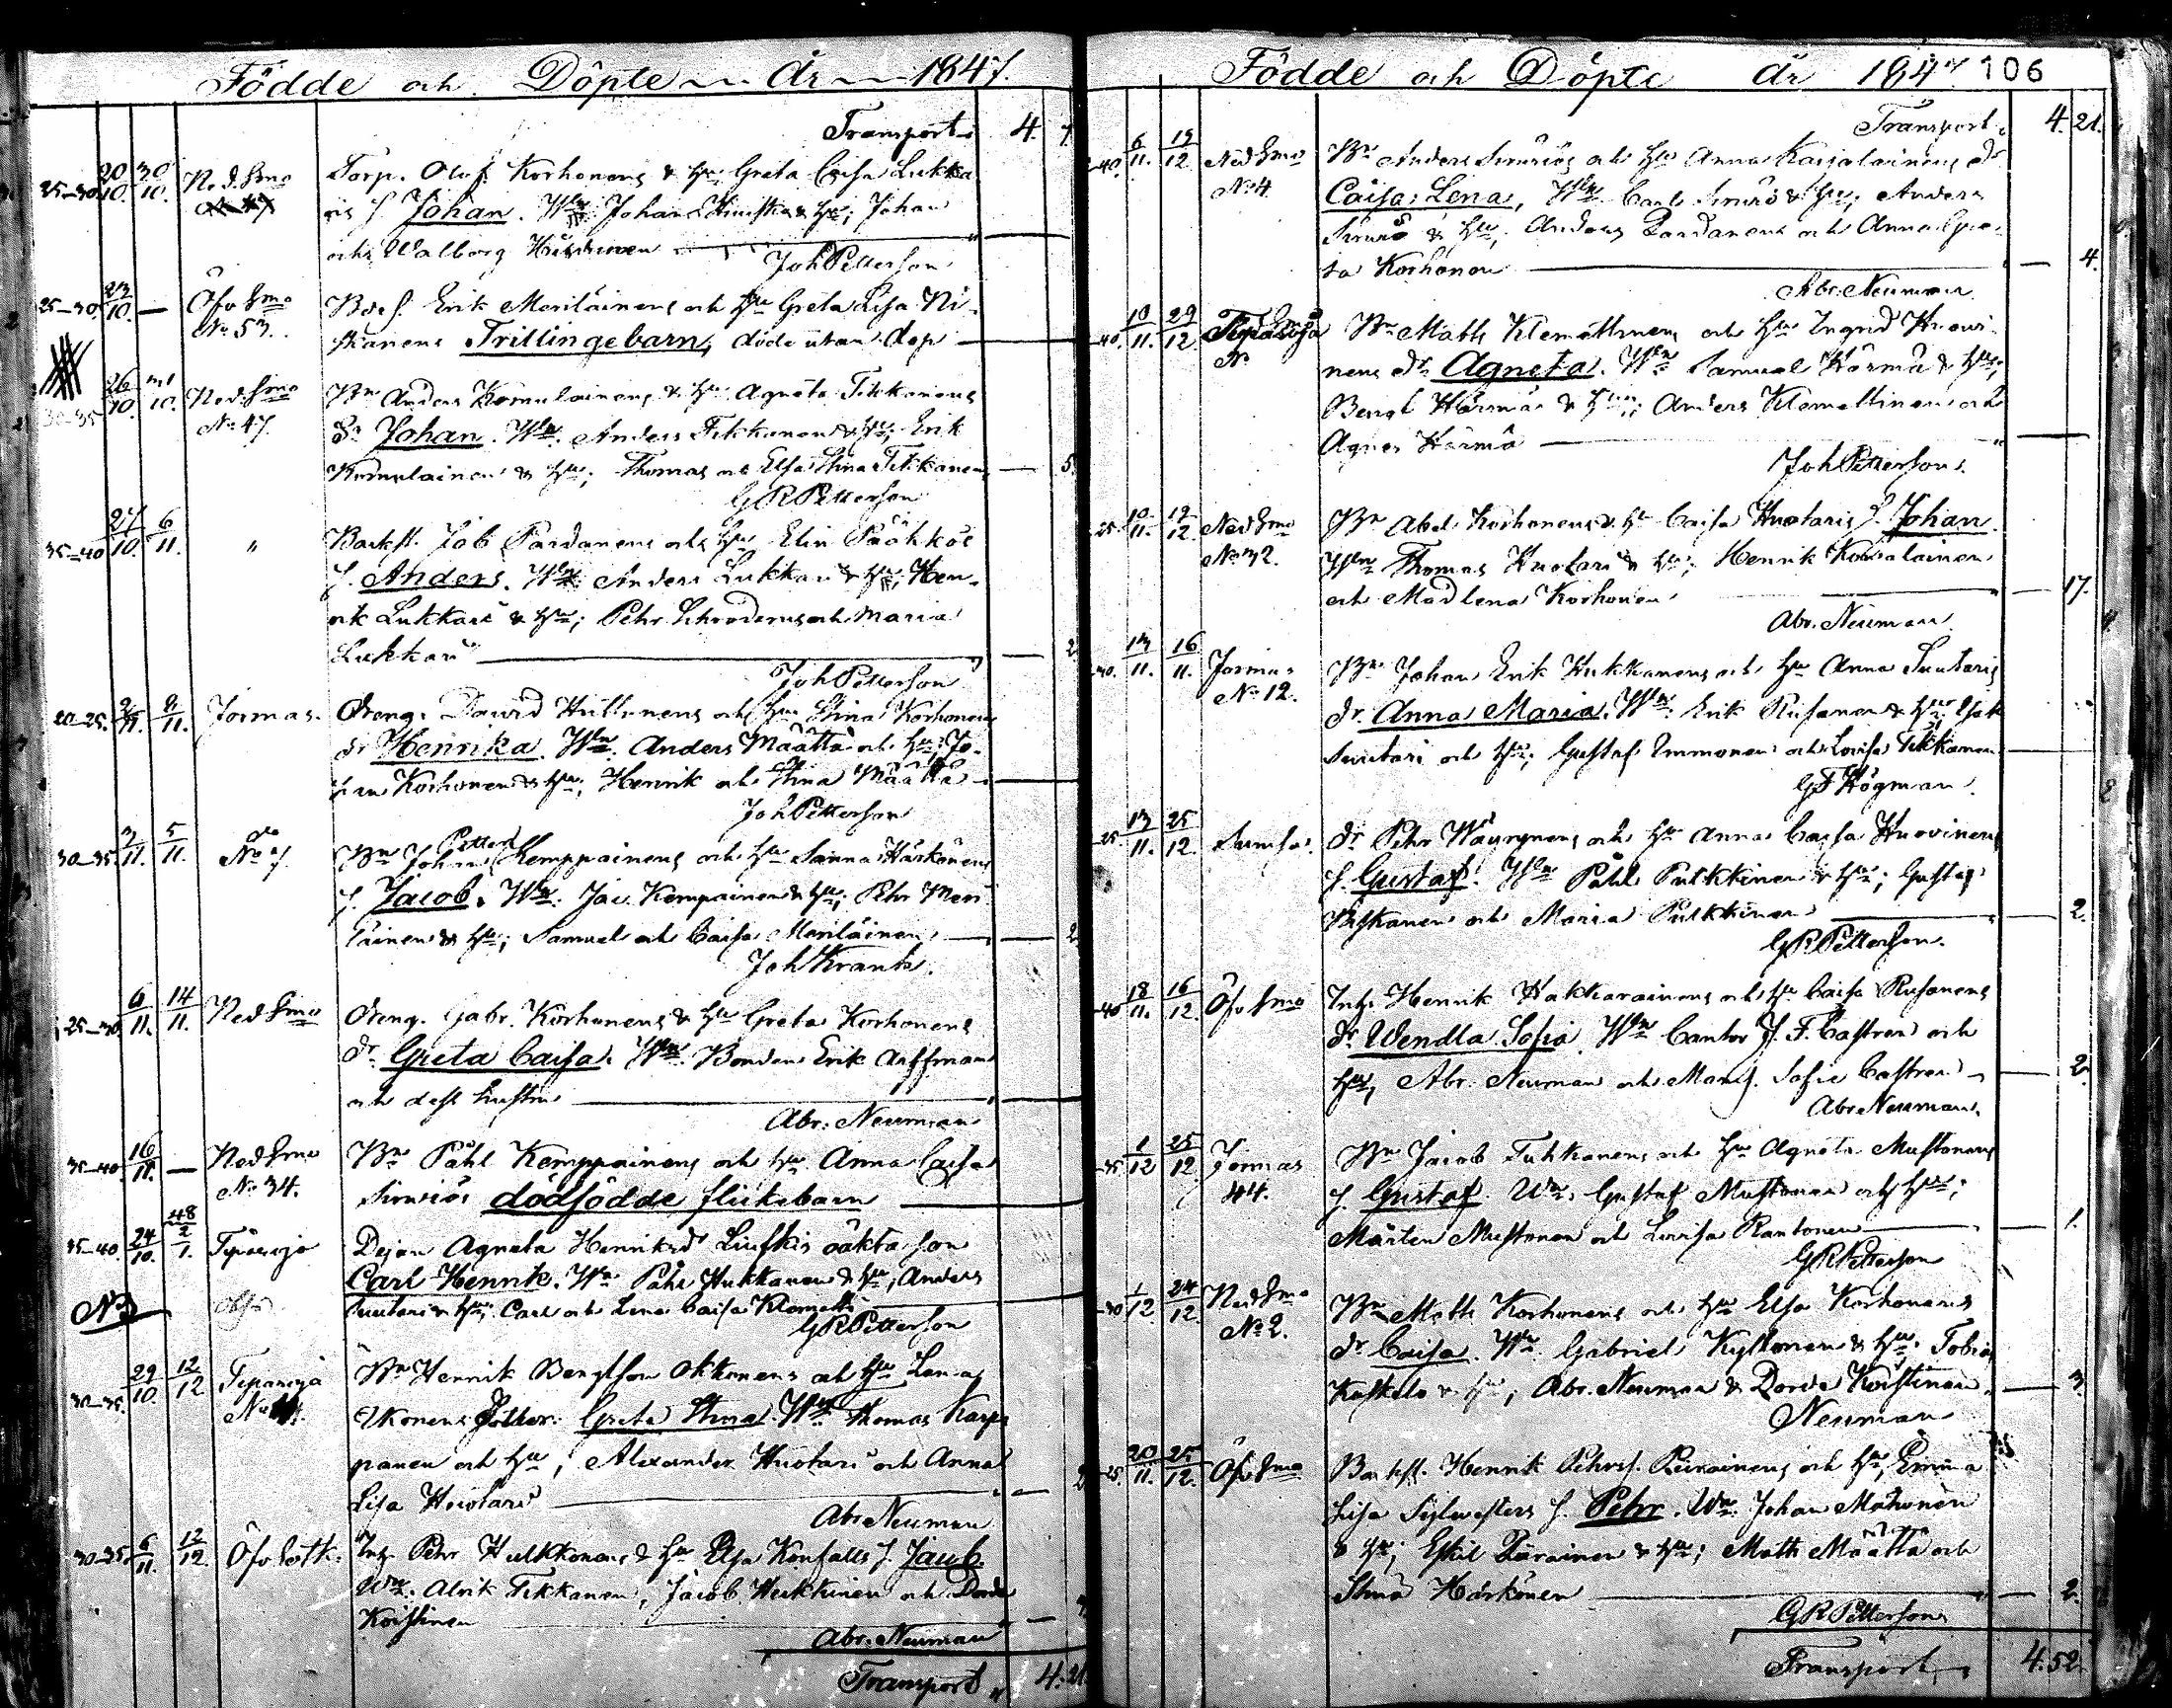 Födde och Döpte År 1847.
Transport 4. 7
25–30 20/10. 30/10. Ned. Smo Torp. Olof Korhonens & hu Greta Caisa Lukka
ris s Johan. Wn Johan & hu; Johan
och Walborg
Joh Petterson
25–30. 23/10. — Öfv Smo Bdes. Erik Meriläinens och hu Greta Lisa Ni-
No 53. skanens Trillingebarn, döde utan dop
26/10. 31/10. Ned. Smo Bn Anders Komulainens & hu Agneta Tikkanens
30–35 No 47. Sn Johan. Wn. Anders Tikkanen & hu; Erik
Komulainen & hu; Thomas och Elsa Stina Tikkanen — 5
G R Petterson
35–40 27/10. 6/11. " Backst. Job Pardanens och hu Elin Pääkkös
s. Anders. Wn Anders Lukkari & hu; Hen-
rik Lukkari & hu; Pehr Schroderus och Maria
Lukkari — 2
Joh Petterson
20–25. Jormas. Dreng. David Hiltunens och hu Stina Korhonens
dr Henrika. Wn. Anders Määttä och hu; Jo-
han Korhonen & hu; Henrik och Stina Määttä
Joh Petterson
30–35. 3/11. 5/11. No 7. Bn Johan Petter Kemppainens och hu Sanna Härkönens
s. Jacob. Wn. Jac. Kempainen & hu; Pehr Meri
läinen & hu; Samuel och Caisa Meriläinen — 2
Joh Krank
25–30. 6/11. 14/11. Ned Smo Dreng. Gabr. Korhonens & hu Greta Korhonens
dr Greta Caisa. Wn. Bonden Erik Arffman
och dess hustru
Abr. Neuman
35–40. 16/11. — Ned Smo Bn Påhl Kemppainens och hu Anna Caisa
No 34. Simiös dödfödde flickebarn
35–40. 24/10. 48 2/1. Dejan Agneta Henriksd oäkta son
Carl Henrik. Wn Påhl Hukkanen & hu; Anders
No 3 Suutari & hu; Carl och Lena Caisa
G R Petterson
30–35. 29/10 12/12 Bn Henrik Bengtson Okkonens och hu Lena
dotter Greta Stina Wn Thomas Karp
panen och hu; Alexander Huotari och Anna
Lisa Huotari
Abr Neuman
30–35 6/11. 12/12 Öfv Sotk. Inh. Pehr Hulkkonens & hu Elsa s. Jacob.
Wn. Alrik Tikkanen, Jacob Heikkinen och Dorde
Koistinen
Abr. Neuman
Transport 4. 21
Födde och Döpte År 1847 106
Transport 4. 21.
40. 6/11. 19/12 Ned Smo Bn Anders Simiös och hu Anna Karjalainens dr
No 4 Caisa Lena, Wn Carl Simiö & hu; Anders
Simiö & hu; Anders Pardanen och Anna Gre-
ta Korhonen — 4.
Abr. Neuman
40. 10/11. 29/12 Bn Matts Klemettinens och hu Ingrid Huovi-
No nens dr Agneta. Wn Samuel Härmä & hu;
Bengt Härmä & hu; Anders Klemettinen och
Agnes Härmä
Joh Petterson.
25. 10/11. 12/12 Ned Smo Bn Abel Korhonens & hu Caisa Huotaris s. Johan.
No 32. Wn Thomas Huotari & hu; Henrik
och Madlena Korhonen — 17.
Abr. Neuman
40. 13/11. 16/11. Jormas Bn Johan Erik Kukkanens och hu Anna Suutaris
No 12. dr. Anna Maria. Wn Erik Rusanen & hu; Isak
Suutari och hu; Gustaf Immonen och Lovisa Tikkanen
G F Högman.
25. 13/11. 25/12. dr Pehr Wäyrynens och hu Anna Caisa Huovinens
s. Gustaf. Wn Påhl Pulkkinen & hu; Gustaf
och Maria Pulkkinen — 2.
G R Petterson.
40 18/11. 16/12. Öfv Smo Inh. Henrik Hakkarainens och hu Caisa Rusanens
dr Wendla Sofia. Wn Cantor J. F. Castren och
hu; Abr. Neuman och Mams. Sofie Castren — 2.
Abr Neuman.
35 1/12 25/12 Jormas Bn Jacob Tuhkanens och hu Agneta Mustonens
44. s. Gustaf. Wn Gustaf Mustonen och hu;
Mårten Mustonen och Lovisa Rantonen — 1.
G R Petterson
30 1/12 24/12. Ned Smo Bn Matts Korhonens och hu Elsa Korhonens
No 2. dr Caisa. Wn Gabriel Kyllönen & hu; Tobias
Kaskelo & hu; Abr. Neuman & Dorde Koistinen — 3
Neuman
25. 20/11. 25/12. Öfv Smo Backst. Henrik Pehrs. Piirainens och hu Emma
Lisa Sylwesters s. Pehr. Wn Johan Mähönen
& hu; Eskil Piirainen & hu; Matts Määttä och
Stina Härkönen — 2.
G R Petterson
Transport 4. 52